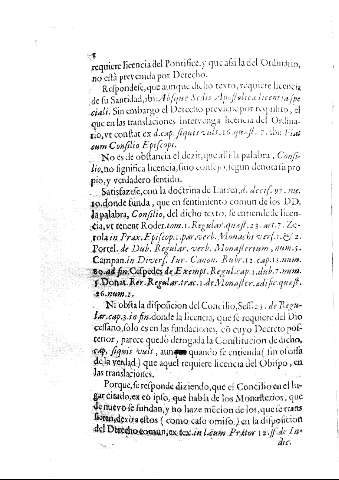 requiere licencia del Pontifice, y que assi la del Ordinario,
no està prevenida por Derecho.
Respondese, que aunque dicho texto, requiere licencia
de su Santidad, ibi: Absque Sedis Apostolicæ licentia spe
ciali. Sin embargo el Derecho previene por requisito, el
que en las translaciones intervenga licencia del Ordina-
rio, vt constat ex d. cap. si quis vult, 16. quæst. 7. ibi: Fiat
cum Consilio Episcopi.
No es de obstancia el dezir, que alli la palabra, Consi-
lio, no significa licencia, sino consejo, segun denota su pro
pio, y verdadero sentido.
Satisfazese, con la doctrina de Lurea, d. decis. 92. nu.
10. donde funda, que en sentimiento comun de los DD.
la palabra, Consilio, del dicho texto, se entiende de licen-
cia, vt tenent Roder. tom. 1. Regular. quæst. 23. art. 7. Ze-
rola in Prax. Episcop. 1. par. verb. Monach. vers. 1. & 2.
Portel. de Dub. Regular. verb. Monasterium, num. 5.
Campan. in Divers. Iur. Canon. Rubr. 12. cap. 13. num.
80. ad fin. Cespedes de Exempt. Regul. cap. 1. dub. 7. num.
5. Donat. Rer. Regular. trac. 1. de Monaster. ædific. quæst.
26. num. 2.
Ni obsta la disposicion del Concilio, Sess. 25. de Regu-
lar. cap. 3. in fin. donde la licencia, que se requiere del Dio
cessano, solo es en las fundaciones, cõ cuyo Decreto pos-
terior, parece quedò derogada la Constitucion de dicho,
cap. si quis vult, aunque quando se entienda (sin ofensa
de la verdad) que aquel requiere licencia del Obispo, en
las translaciones.
Porque, se responde diziendo, que el Concilio en el lu-
gar citado, ex eo ipso, que habla de los Monasterios, que
de nuevo se fundan, y no haze mencion de los, que se trans
fieren, dexa estos (como caso omiso) en la disposicion
del Derecho comun, ex tex. in l. cum Prætor 12. ff. de Iu-
dic.